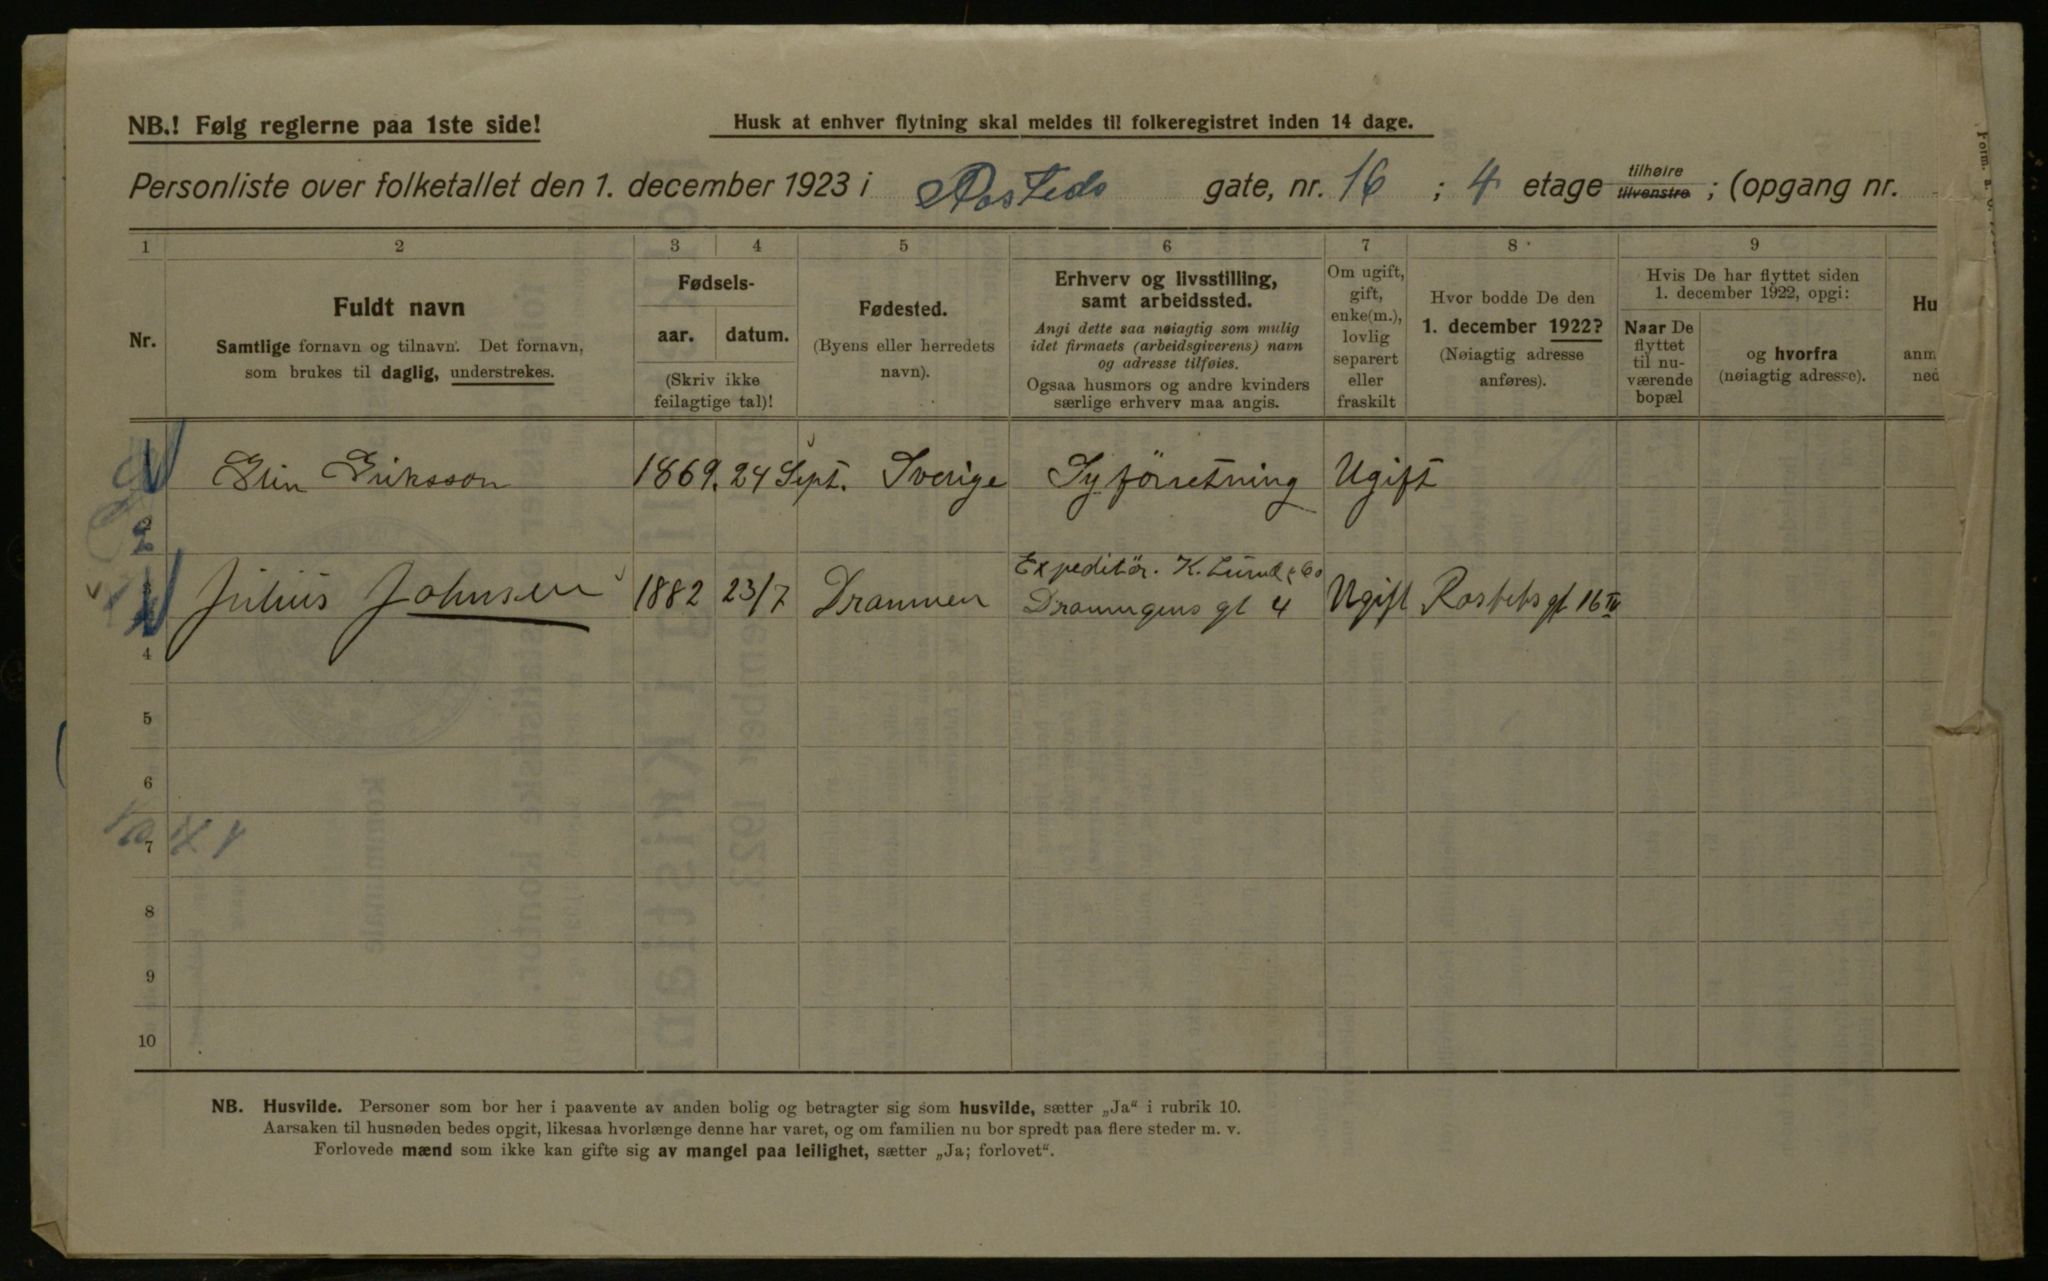 NB.! Følg reglerne paa 1ste side!
Husk at enhver flytning skal meldes til folkeregistret inden 14 dage.
Personliste over folketallet den 1. december 1923 i Rosteds gate, nr. 16 ; 4 etage tilhøire tilvenstre ; (opgang nr.
1 2 3 4 5 6 7 8 9
Nr.
Fuldt navn
Samtlige fornavn og tilnavn. Det fornavn,
som brukes til daglig, understrekes.
Fødsels-
aar. datum.
(Skriv ikke
feilagtige tal)!
Fødested.
(Byens eller herredets
navn).
Erhverv og livsstilling,
samt arbeidssted.
Angi dette saa nøiagtig som mulig
idet firmaets (arbeidsgiverens) navn
og adresse tilføies.
Ogsaa husmors og andre kvinders
særlige erhverv maa angis.
Om ugift,
gift,
enke(m.),
lovlig
separert
eller
fraskilt
Hvor bodde De den
1. december 1922?
(Nøiagtig adresse
anføres).
Hvis De har flyttet siden
1. december 1922, opgi:
Naar De
flyttet
til nu-
værende
bopæl
og hvorfra
(nøiagtig adresse).
Hu
anm
ned
1 Elin Eriksson 1869. 24 Sept. Sverige Syförretning Ugift
2
Expeditör. K. Lund & Co
Julius Johnsen 1882 23/7 Drammen Dronnigens gt 4 Ugift Rosteds gt 16 IV
4
5
6
7
8
9
10
NB. Husvilde. Personer som bor her i paavente av anden bolig og betragter sig som husvilde, sætter „Ja" i rubrik 10.
Aarsaken til husnøden bedes opgit, likesaa hvorlænge denne har varet, og om familien nu bor spredt paa flere steder m. v.
Forlovede mænd som ikke kan gifte sig av mangel paa leilighet, sætter „Ja; forlovet".